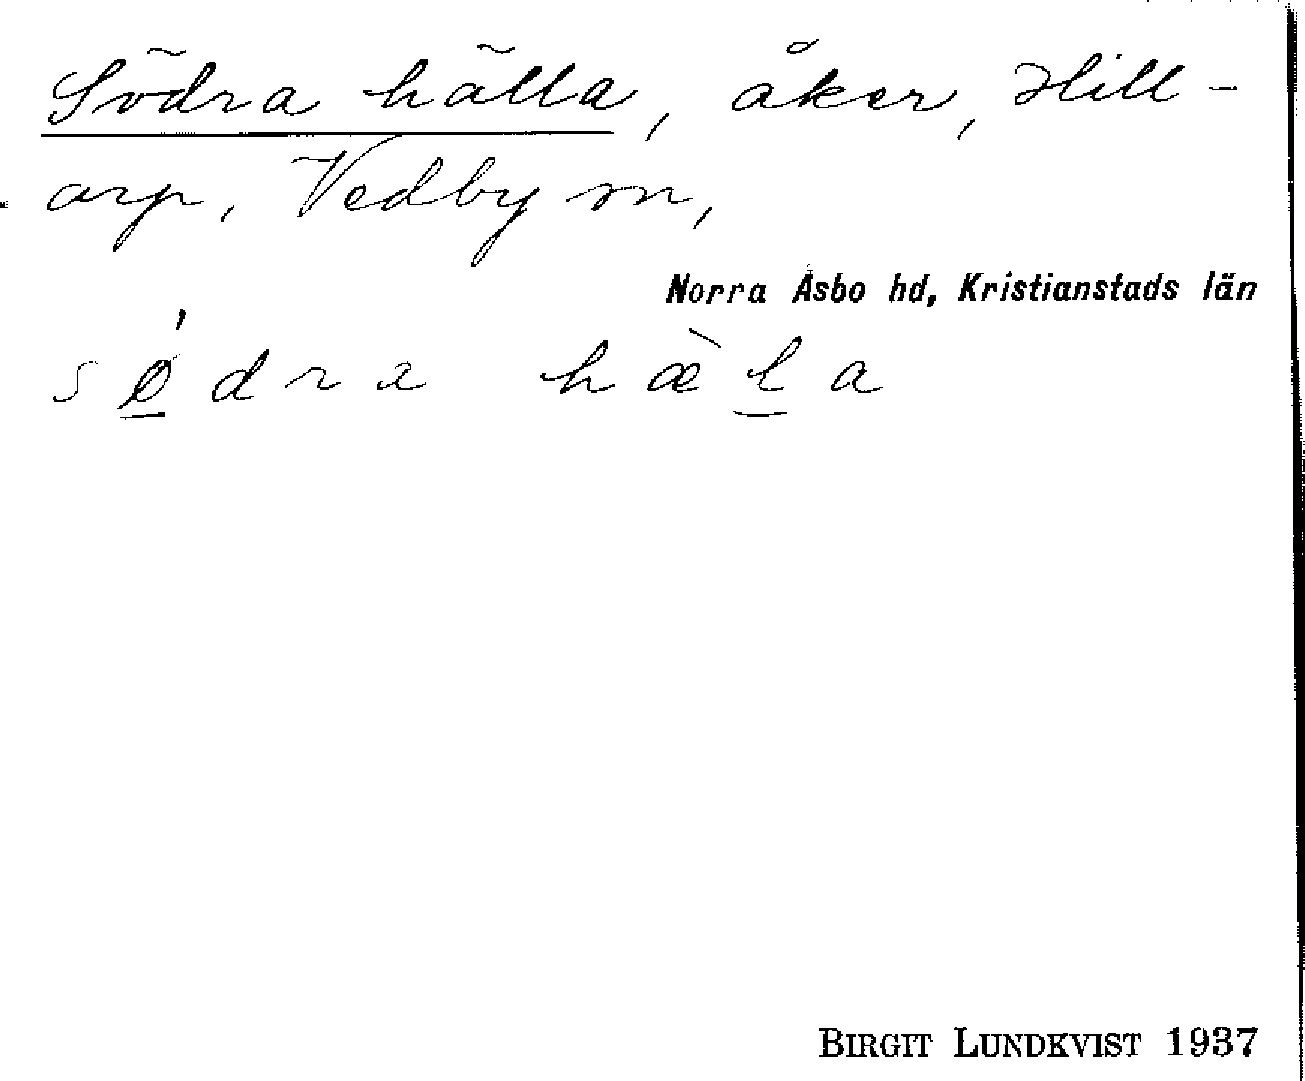 Södra hälla, åker, Hill-
arp, Vedby sn,
Norra Åsbo hd, Kristianstads län
sǿdra hæ̀la
BIRGIT LUNDKVIST 1937